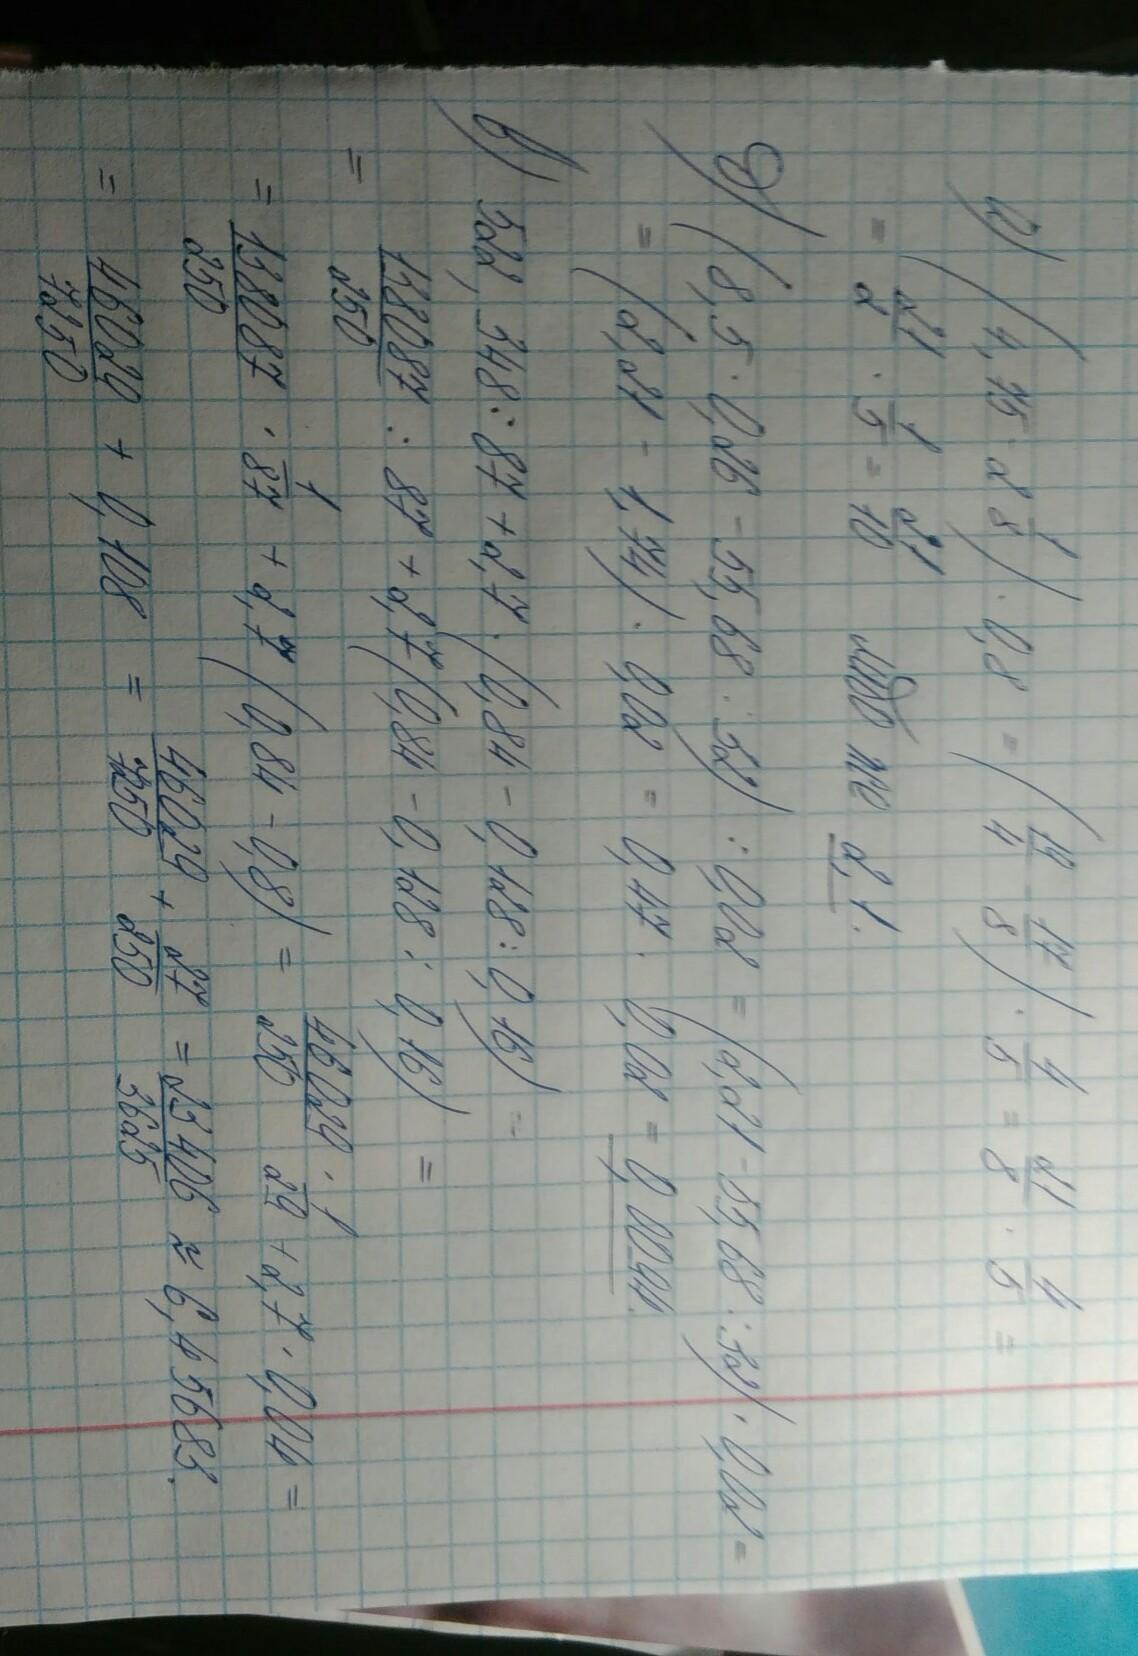 г) (4,75 - 2 1/8) · 0,8 = (19/4 - 17/8) · 4/5 = 21/8 · 4/5 =
= 21/2 · 1/5 = 21/10 или же 2,1.
д) (8,5 · 0,26 - 55,68 : 32) : 0,02 = (2,21 - 55,68 : 32) · 0,02 =
= (2,21 - 1,74) · 0,02 = 0,47 · 0,02 = 0,0094.
в) 552,348 : 87 + 2,7 · (0,84 - 0,128 : 0,16) =
= 138087/250 : 87 + 2,7 (0,84 - 0,128 : 0,16) =
= 138087/250 · 1/87 + 2,7 (0,84 - 0,8) = 46029/250 · 1/29 + 2,7 · 0,04 =
= 46029/7250 + 0,108 = 46029/7250 + 27/250 = 23406/3625 ≈ 6,45683.